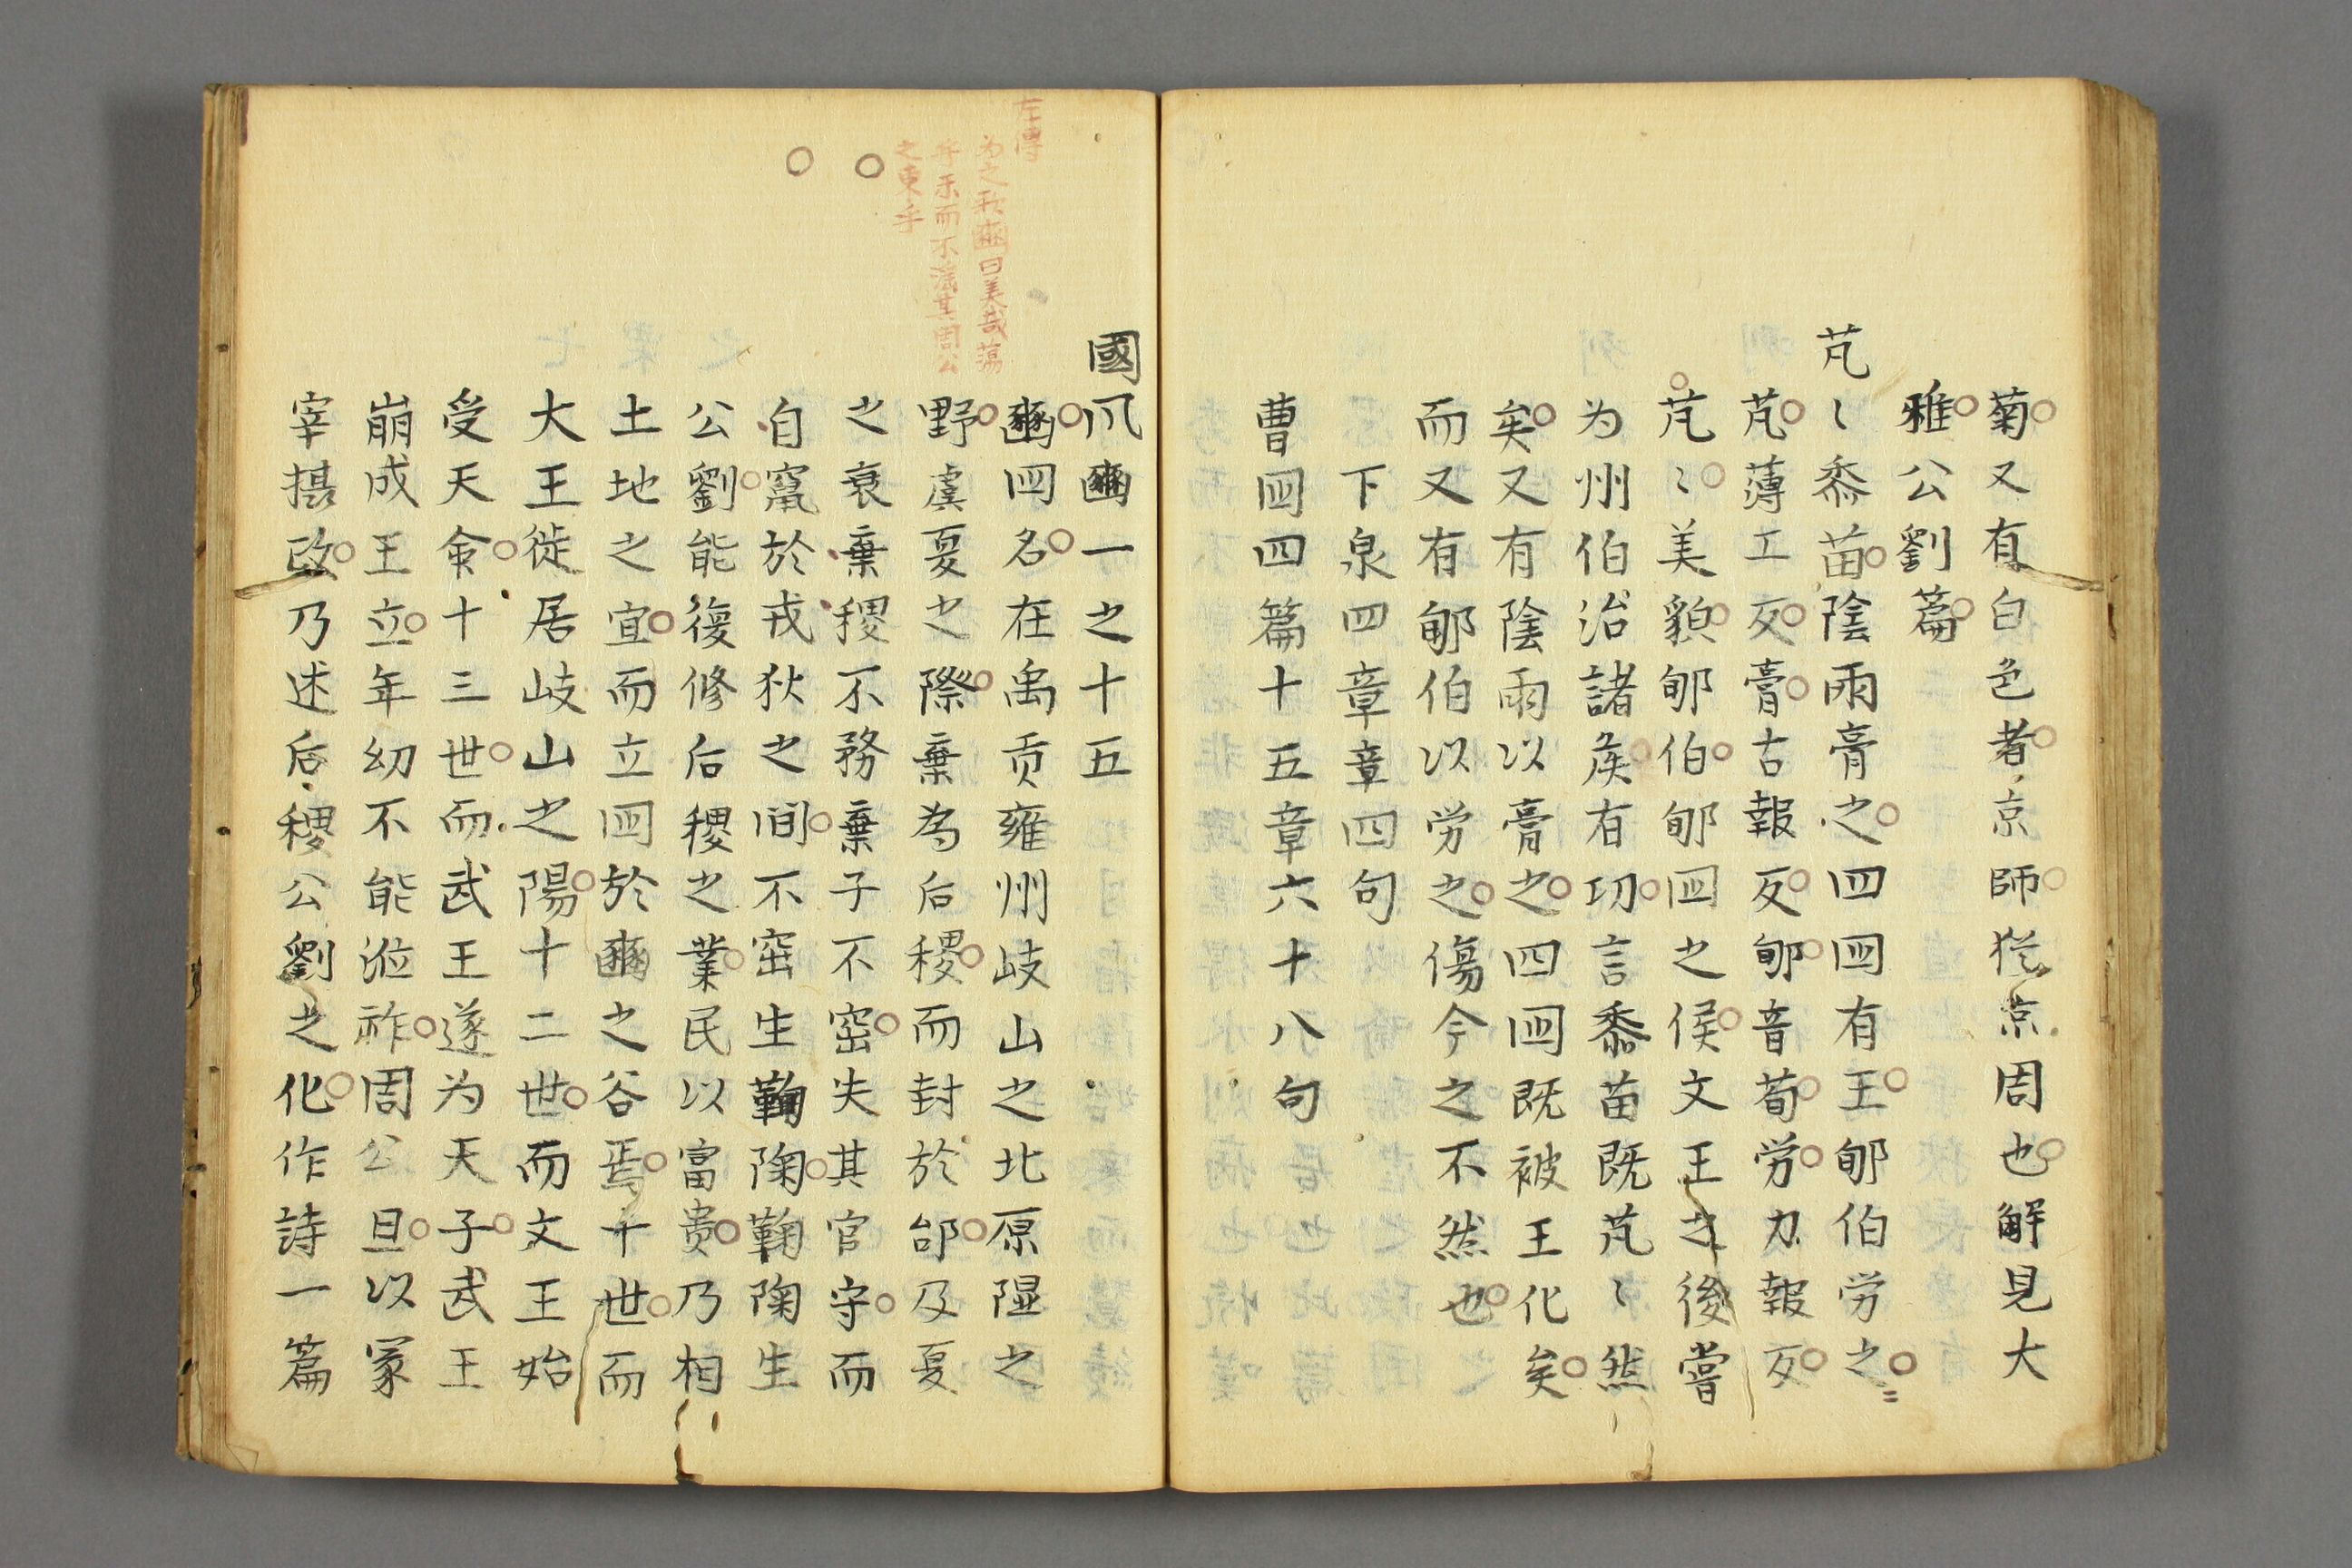 菊又有白色者京師猶京周也解見大
雅公劉篇
芃〻黍苗陰雨膏之四囯有王郇伯労之
芃薄工反膏古報反郇音荀労力報反
芃〻美貌郇伯郇囯之侯文王之後嘗
为州伯治諸矦有功言黍苗既芃〻然
矣又有陰雨以膏之四囯既被王化矣
而又有郇伯以労之傷今之不然也
下泉四章章四句
曹囯四篇十五章六十八句
國风豳一之十五
豳囯名在禹贡雍州岐山之北原隰之
野虞夏之際棄為后稷而封於邰及夏
之衰棄稷不務棄子不窋失其官守而
自竄於戎狄之间不窋生鞠陶鞠陶生
公劉能復修后稷之業民以富贵乃相
土地之宜而立囯於豳之谷焉十世而
大王徙居岐山之陽十二世而文王始
受天命十三世而武王遂为天子武王
崩成王立年幼不能涖祚周公旦以冢
宰摂政乃述后稷公劉之化作詩一篇
左傳
为之歌豳曰美哉蕩
乎乐而不淫其周公
之東乎